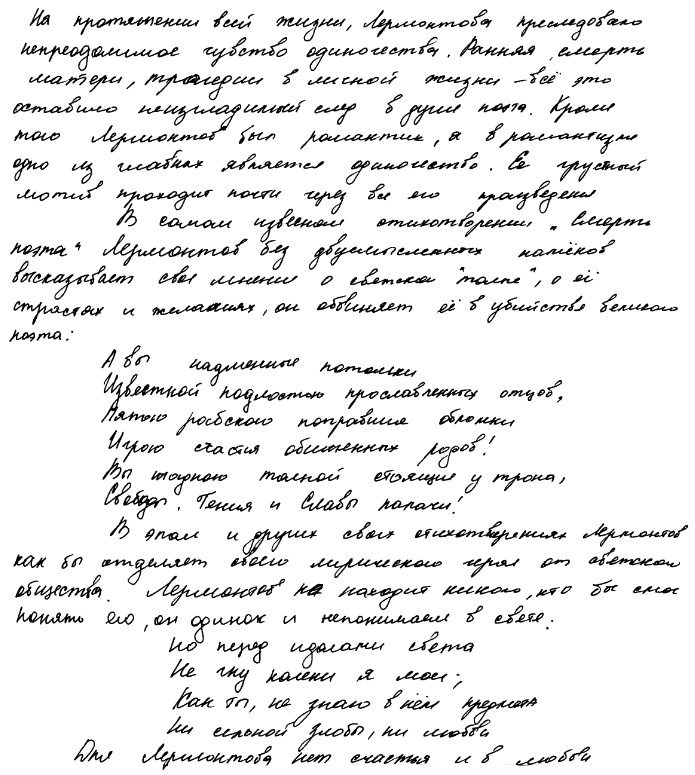 На протяжении всей жизни, Лермонтова преследовало
непреодолимое чувство одиночества. Ранняя смерть
матери, трагедии в личной жизни – всё это
оставило неизгладимый след в душе поэта. Кроме
того Лермонтов был романтик, а в романтизме
одно из главных является одиночество. Ее грустный
мотив проходит почти через все его произведения
В самом извесном стихотворении "Смерть
поэта" Лермонтов без двусмысленных намёков
высказывает свое мнение о светской "толпе", о её
страстях и желаниях, он обвиняет её в убийстве великого
поэта:
А вы надменные потомки
Известной подлостью прославленных отцов,
Пятою рабскою поправшие обломки
Игрою счастия обиженных родов!
Вы жадною толпой стоящие у трона,
Свободы, Гения и Славы палачи!
В этом и других своих стихотворениях Лермонтов
как бы отделяет своего лирического героя от светского
общества. Лермонтов не находит никого, кто бы смог
понять его, он одинок и непонимаем в свете:
Но перед идолами света
Не гну колени я мои;
Как ты, не знаю в нём предмета
Ни сильной злобы, ни любви
Для Лермонтова нет счастья и в любви